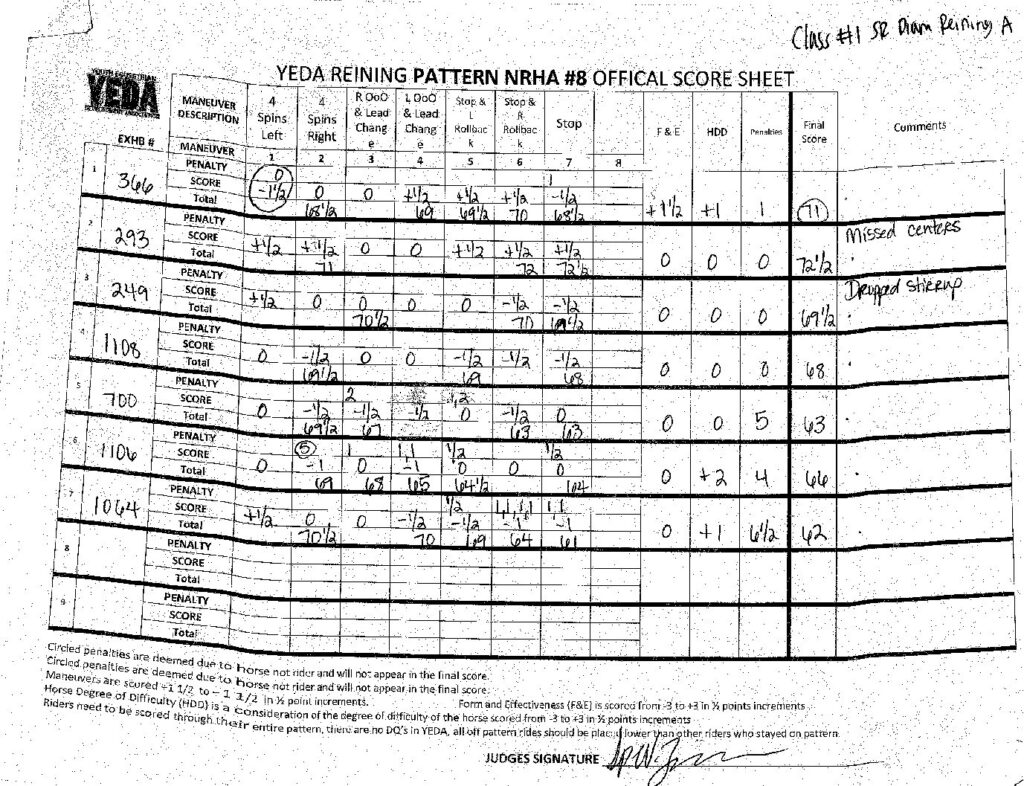 Class #1 SR Diam Reining A
YEDA
YEDA REINING PATTERN NRHA #8 OFFICAL SCORE SHEET
EXHB # MANEUVER DESCRIPTION 4 Spins Left 4 Spins Right R OoO & Lead Chang e L OoO & Lead Chang e Stop & L Rollbac k Stop & R Rollbac k Stop F & E HDD Penalties Final Score Comments
MANEUVER 1 2 3 4 5 6 7 8
1 366 PENALTY 0 1
SCORE -1 1/2 0 0 +1/2 +1/2 +1/2 -1/2
Total 68 1/2 69 69 1/2 70 68 1/2 +1 1/2 +1 1 71
2 293 PENALTY Missed centers
SCORE +1/2 +1/2 0 0 +1/2 +1/2 +1/2
Total 71 72 72 1/2 0 0 0 72 1/2
3 249 PENALTY Dropped stirrup
SCORE +1/2 0 0 0 0 -1/2 -1/2
Total 70 1/2 70 69 1/2 0 0 0 69 1/2
4 1108 PENALTY
SCORE 0 -1/2 0 0 -1/2 -1/2 -1/2
Total 69 1/2 69 68 0 0 0 68
5 700 PENALTY 2 1,2
SCORE 0 -1/2 -1/2 -1/2 0 -1/2 0
Total 69 1/2 67 63 63 0 0 5 63
6 1106 PENALTY 5 1 1,1 1/2 1/2
SCORE 0 -1 0 -1 0 0 0
Total 69 68 65 64 1/2 64 0 +2 4 66
7 1064 PENALTY 1/2 1,1
SCORE +1/2 0 0 -1/2 -1/2 -1 -1
Total 70 1/2 70 69 64 61 0 +1 6 1/2 62
8 PENALTY
SCORE
Total
9 PENALTY
SCORE
Total
Circled penalties are deemed due to horse not rider and will not appear in the final score.
Circled penalties are deemed due to horse not rider and will not appear in the final score.
Maneuvers are scored +1 1/2 to - 1 1/2 in ½ point increments. Form and Effectiveness (F&E) is scored from -3 to +3 in ½ points increments
Horse Degree of Difficulty (HDD) is a consideration of the degree of difficulty of the horse scored from -3 to +3 in ½ points increments
Riders need to be scored through their entire pattern, there are no DQ's in YEDA, all off pattern rides should be placed lower than other riders who stayed on pattern.
JUDGES SIGNATURE